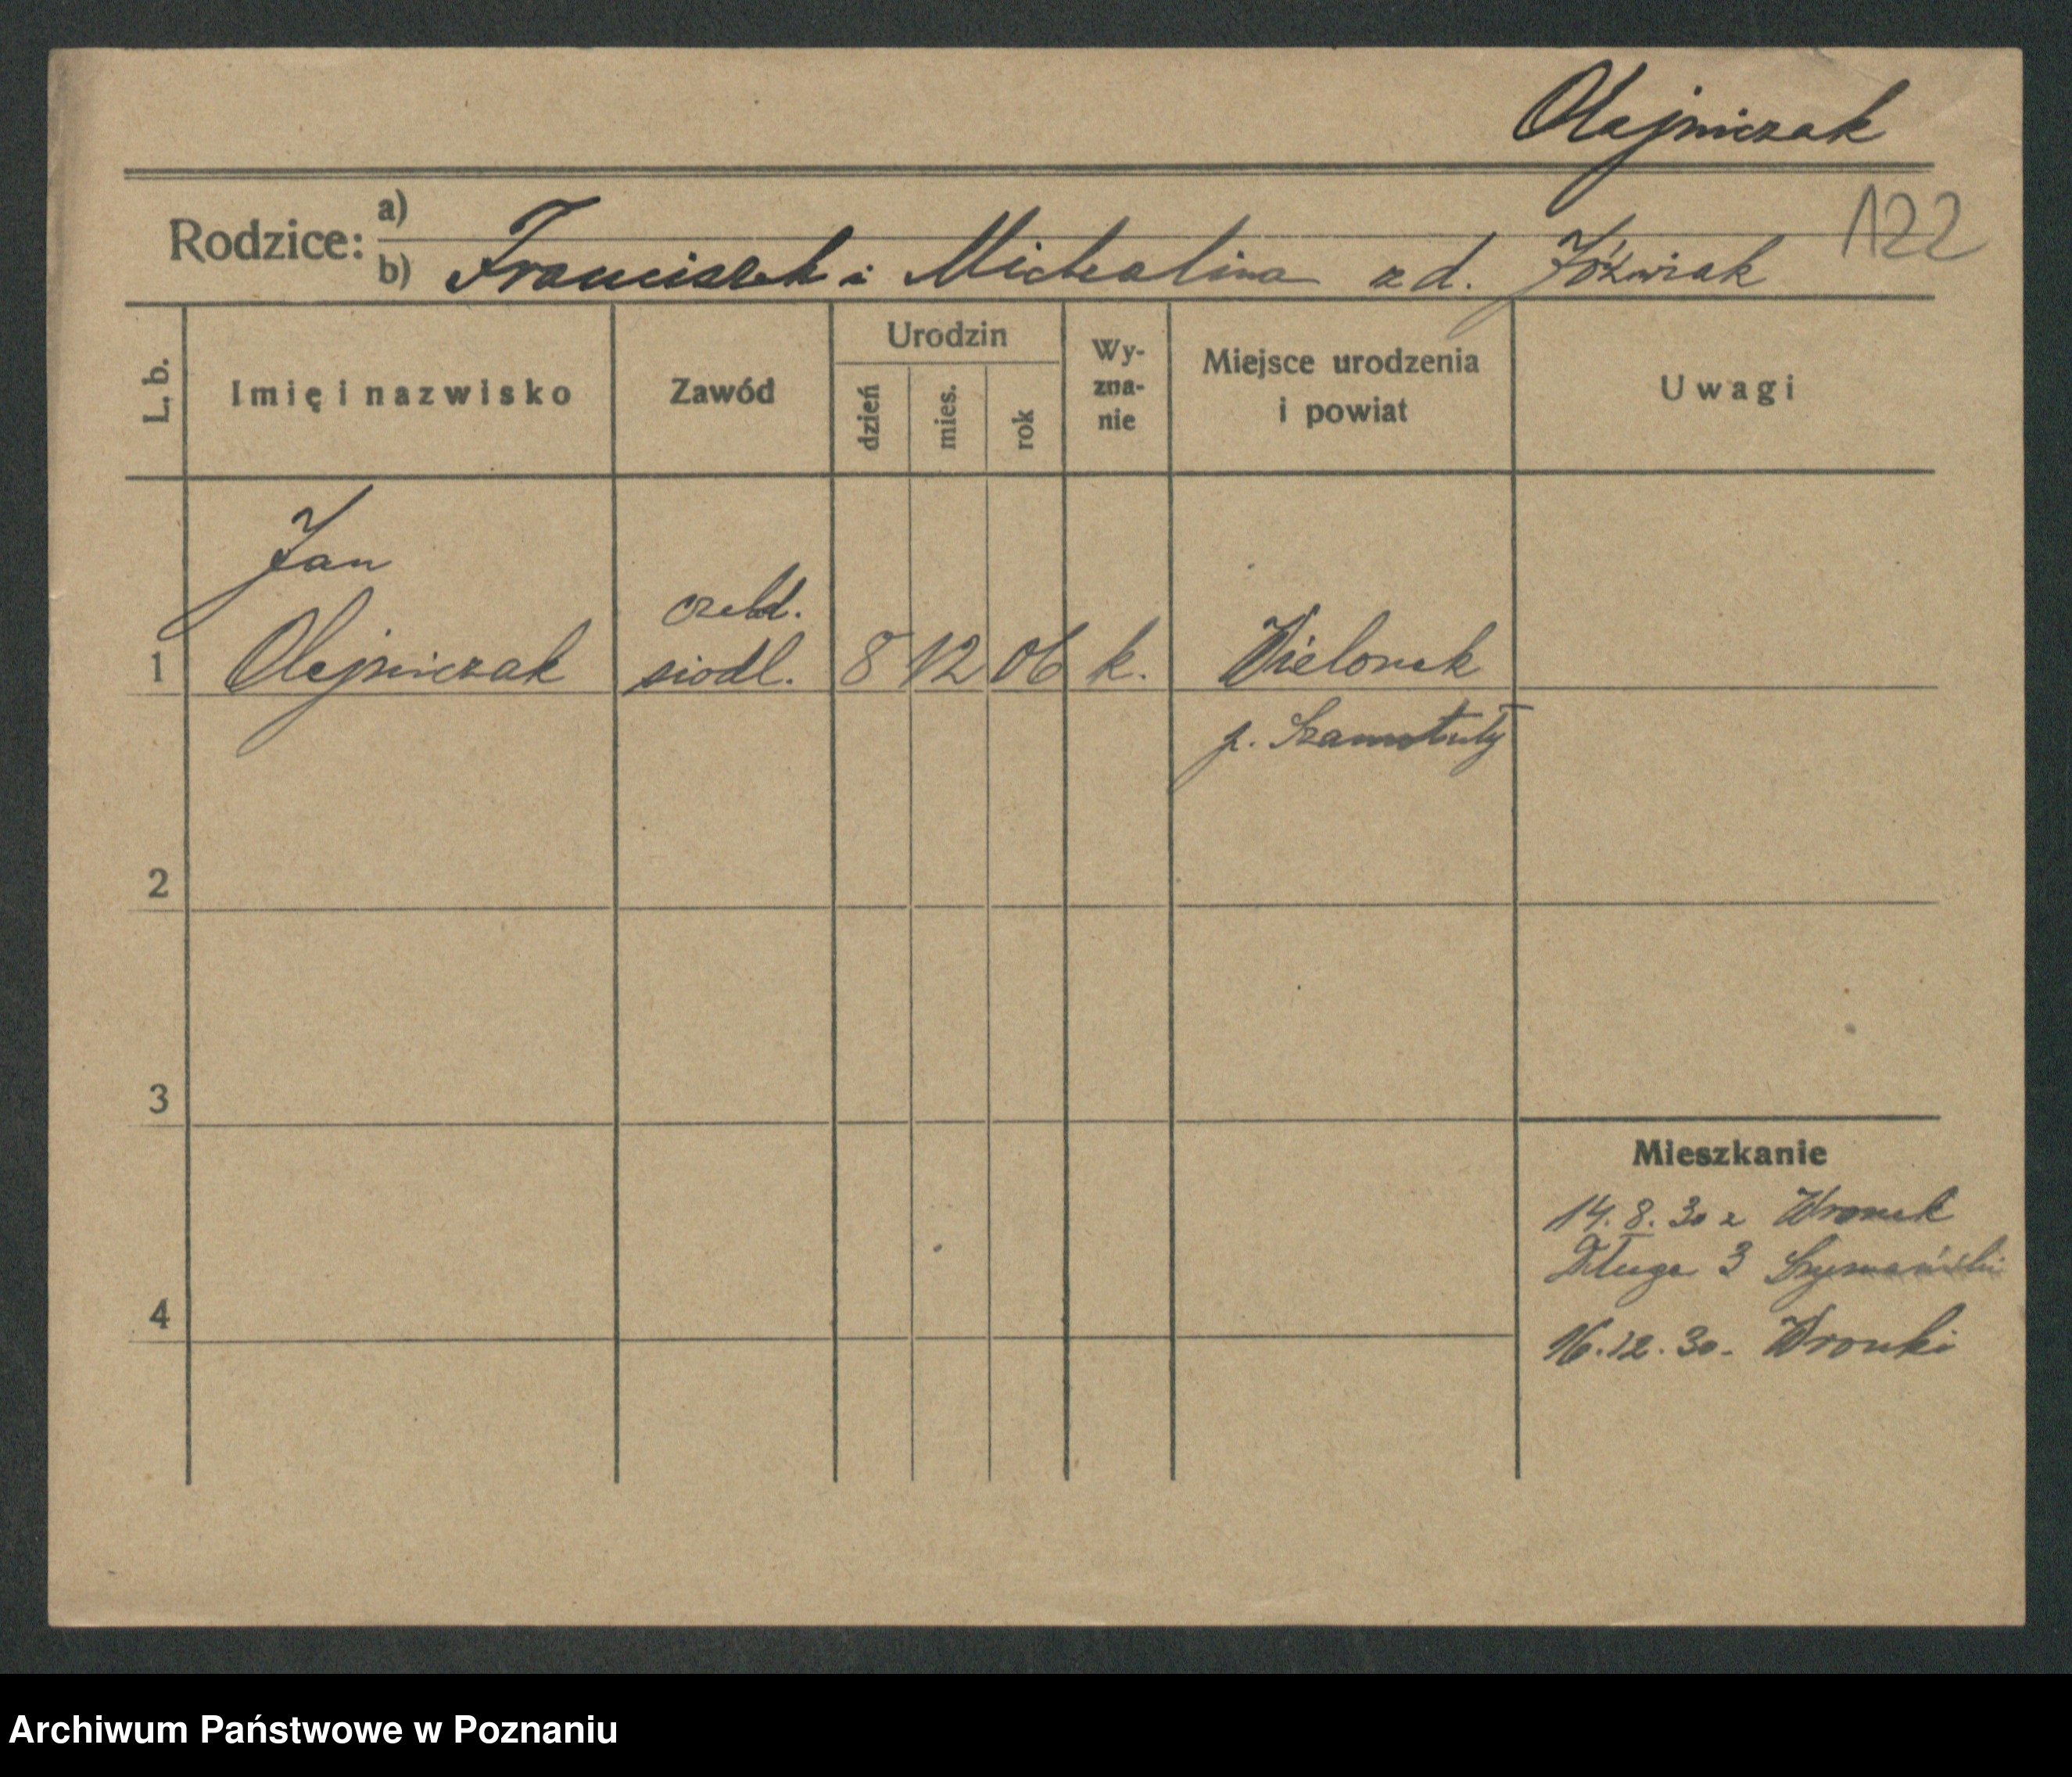 Olejniczak
122
Rodzice: a)
b) Franciszek i Michalina z d. Jóźwiak
L. b.
Imię i nazwisko
Zawód
Urodzin
dzień
mies.
rok
Wy-
zna-
nie
Miejsce urodzenia
i powiat
Uwagi
Jan
czeld.
1 Olejniczak siodl. 8 12 06 k. Wielonek
p. Szamotuły
2
3
Mieszkanie
14. 8. 30 z Wronek
Długa 3 Szymański
4
16.12.30. Wronki
Archiwum Państwowe w Poznaniu